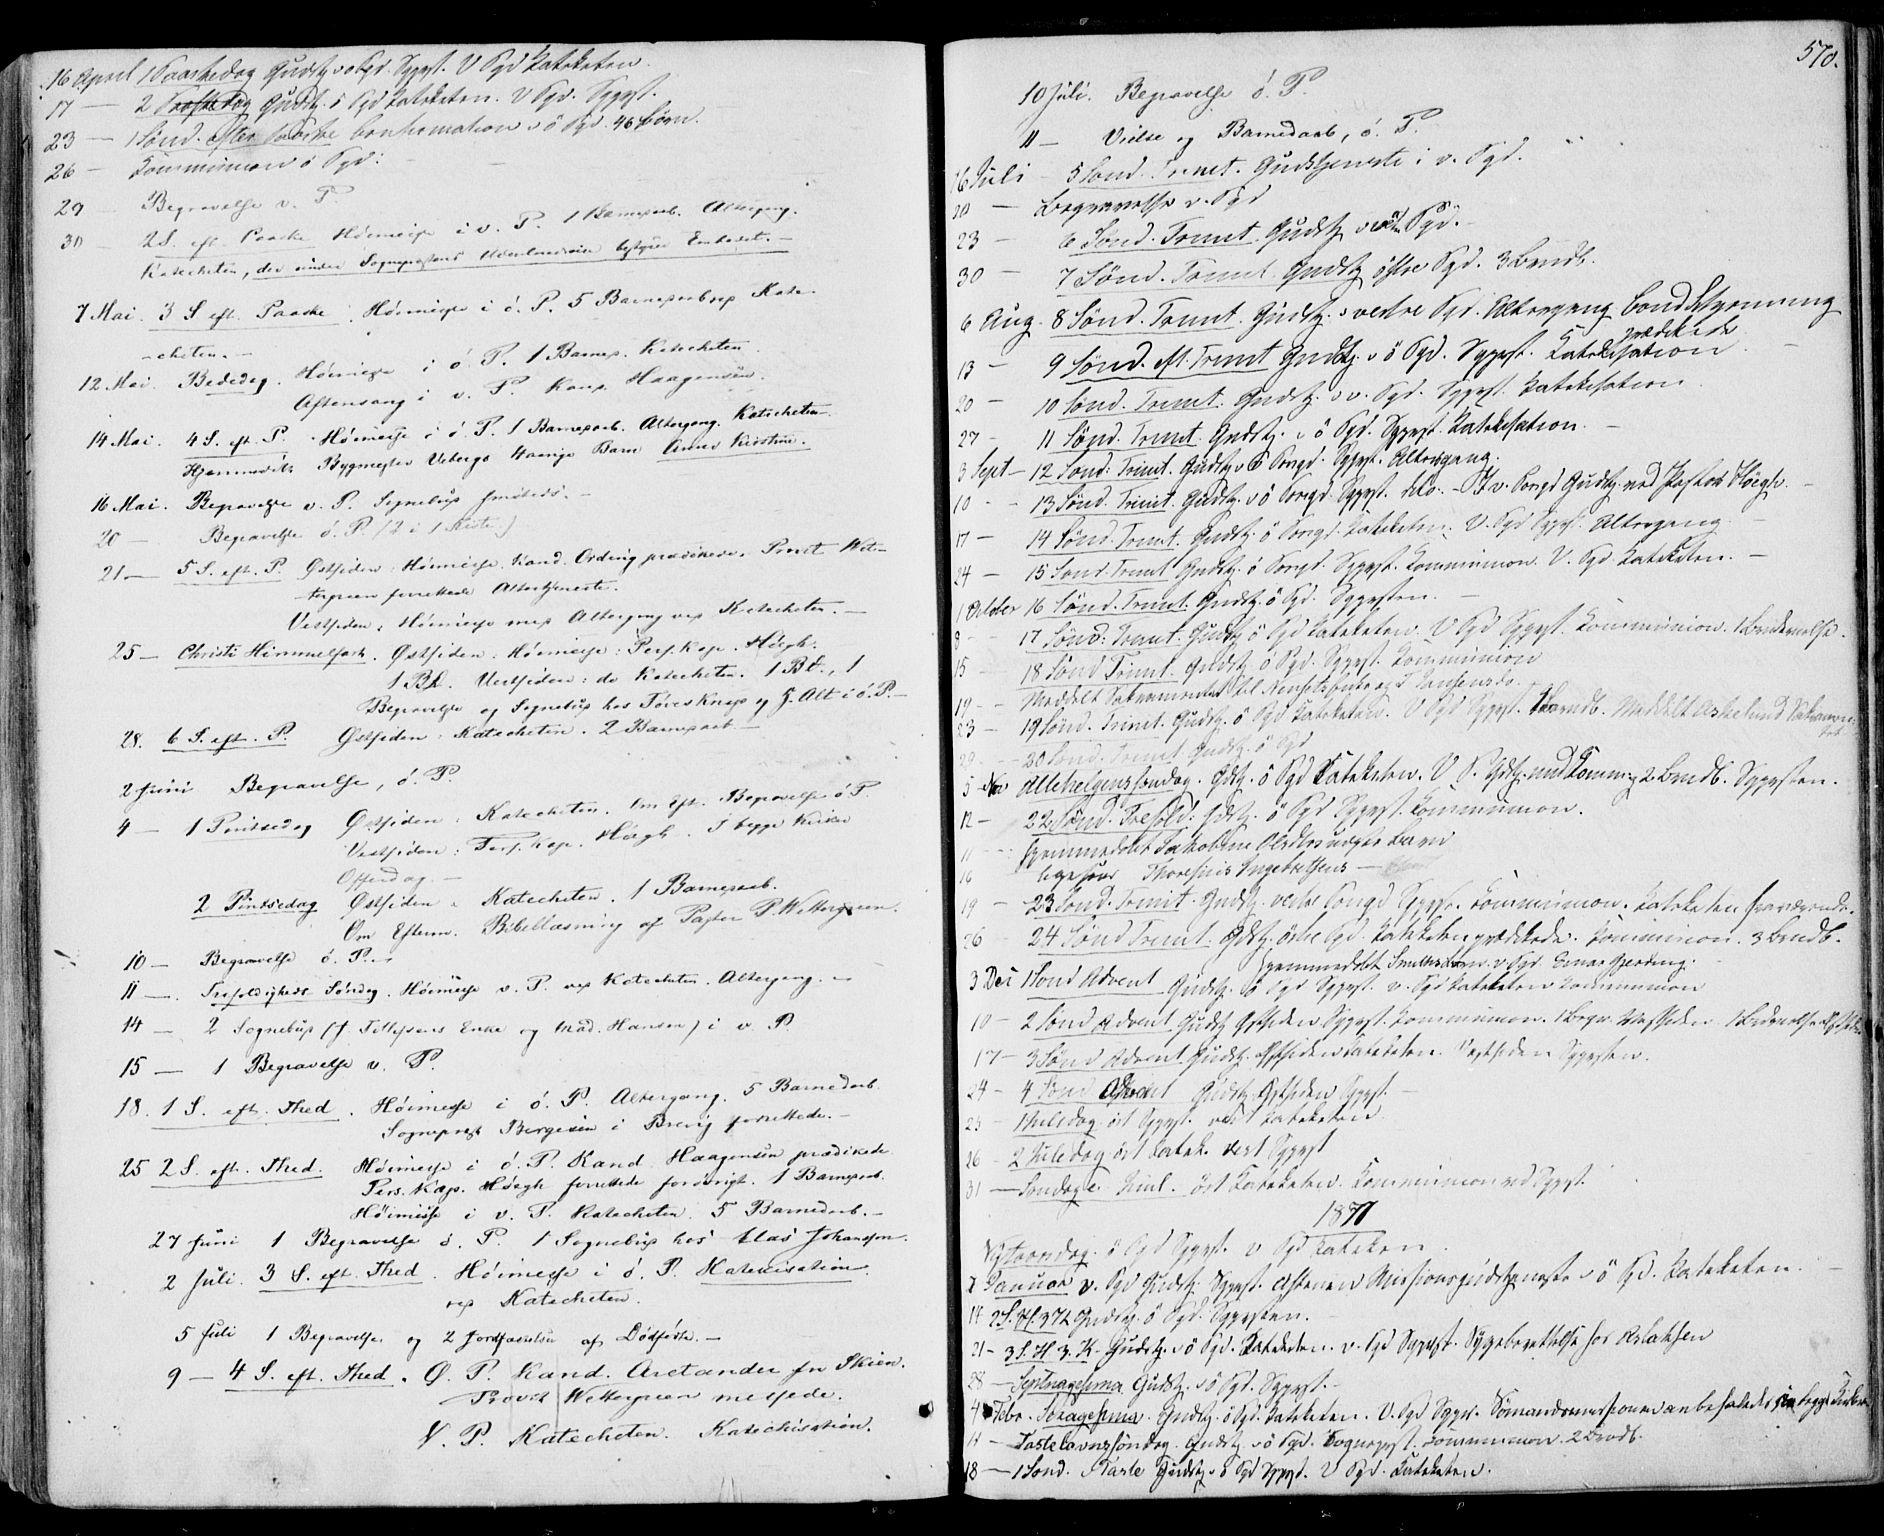 16 April 1 Paaskedag Gudstj. i ö Sgd. Sgprst. V Sgd Kateketen.
17 — 2 Paaskedag Gudstj. ö Sgd Kateketen. V Sgd. Sgprst.
23 — 1 Sönd. efter Paaske Confirmation i ö Sgd. 46 Börn.
26 — Communion ö Sgd.
29 Begravelse v. P.
30 2 S. eft. Paaske Høimesse i v. P. 1 Barnedaab. Altergang.
Katecheten, der under Sognepræstens Udenlandsreise bestyrer Embedet. —
7 Mai. 3 S eft. Paaske. Høimesse i ö. P. 5 Barnedaab ved Kate-
cheten. —
12 Mai. Bededag. Høimesse i ö. P. 1 Barned. Katecheten
Aftensang i v. P. Kand. Haagensen.
14 Mai. 4 S. eft. P. Høimesse i ö. P. 1 Barnedaab. Altergang. Katecheten.
Hjemmedöbt Bygmester Uebergs 4 aarige Barn Anne Kirstine.
16 Mai. Begravelse v. P. Sognebud —
20 — Begravelse ö. P. (2 i 1 Kiste.)
21 — 5 S. eft. P. Østsiden: Høimesse. Kand. Ording prædikede. Provst Wet-
tergreen forrettede Altertjeneste.
Vestsiden: Høimesse med Altergang ved Katecheten. —
25 — Christi Himmelfart. Østsiden: Høimesse: Pers. Kap. Høegh.
1 Bd. Vestsiden: do Katecheten. 1 Bd., 1
Begravelse og Sognebud hos Tores Knap og J. Alt i ö. P. —
28. 6 S. eft. P. Østsiden: Katecheten. 2 Barnedaab —
2 Juni Begravelse, ö. P.
4 — 1 Pintsedag Østsiden: Katecheten. Om Eft. Begravelse ö P.
Vestsiden: Pers. Kap. Høegh. I begge Kirker
Offerdag. —
2 Pintsedag Østsiden: Katecheten. 1 Barnedaab.
Om Efterm. Bibellæsning af Pastor P. Wettergreen.
10 — Begravelse ö. P. —
11 — Trefoldigheds Söndag. Høimesse v. P. ved Katecheten. Altergang. —
14 — 2 Sognebud (J. Tellefsens Enke og Mad. Hansen) i v. P.
15 — 1 Begravelse v. P.
18. 1 S. eft. Thed. Høimesse i ö. P. Altergang. 5 Barnedaab.
Sognepræst Børgesen i Brevig forrettede. —
25 2 S. eft. Thed. Høimesse i ö. P. Kand. Haagensen prædikede
Pers. Kap. Høegh forrettede forövrigt. 1 Barnedaab.
Høimesse i v. P. Katecheten. 5 Barnedaab. —
27 Juni 1 Begravelse ö. P. 1 Sognebud hos Elias Johansen.
2 Juli. 3 S. eft. Thed. Høimesse i ö. P. Katechisation.
ved Katecheten.
5 Juli 1 Begravelse og 2 Jordfæstelser af Dödfödte. —
9 — 4 S. eft. Thed. Ø. P. Kand. Arctander fra Skien.
Provst Wettergreen messede.
V. P. Katecheten. Katechisation.
570.
10 Juli. Begravelse ö. P.
11 — Vielse og Barnedaab, ö. P.
16 Juli — 5 Sönd. Trinit. Gudstjeneste i v. Sgd.
20 — Begravelse v. Sgd
23 — 6 Sönd. Trinit. Gudstj. vestre Sgd.
30 — 7 Sönd. Trinit. Gudstj östre Sgd. 3 Brndb.
6 Aug. 8 Sönd. Trinit. Gudstj. i vestre Sgd. Altergang Cand Styrmung
prædikede
13 — 9 Sönd. Aft. Trinit Gudstj. i ö Sgd. Sgprst. Katekisation. —
20 — 10 Sönd. Trinit. Gudstj. i v. Sgd. Sgprst. Katekisation.
27 — 11 Sönd. Trinit. Gudstj. i ö Sgd. Sgprst. Katekisation. —
3 Sept — 12 Sönd: Trinit. Gudstj. i ö Songd. Sgprst. Altergang.
10 — 13 Sönd. Trinit. Gudstj. i ö Songd. Sgprst. do. — I v. Songd Gudstj. ved Pastor Høegh. —
17 — 14 Sönd. Trinit. Gudstj. ö Songd. Kateketen. V. Sgd Sgprst. Altergang. —
24 — 15 Sönd. Trinit. Gudstj. ö Songd. Sgprst. Kommunion. V. Sgd. Kateketen. —
1 Oktober 16 Sönd. Trinit. Gudstj. ö Sgd. Sgprsten. —
8 — 17 Sönd. Trinit. Gudstj. ö Sgd Kateketen. V Sgd Sgprst. Kommunion. 1 Begravelse.
15 — 18 Sönd Trinit. Gudstj. ö Sgd. Sgprst. Kommunion
19 — Meddelt Sakramentet til
23 — 19 Sönd. Trinit. Gudstj. ö Sgd Kateketen. V Sgd Sgprst. Brndb. Meddelt Askelund Sakramen-
tet.
29. — 20 Sönd. Trinit. Gudstj. ö Sgd
5 Nov Allehelgenssöndag. Gdstj. ö Sgd Kateketen. V S. Gdstj. med Komm. 2 Brndb. Sgprsten.
12 — 22 Sönd. Trefold: Gdstj. ö Sgd Sgprst. Kommunion.
11 — Hjemmedöbt Jakobine Olsdtr.s Barn
16 ligesaa Thorsines Ingebretsens —
19 — 23 Sönd. Trinit. Gudstj. vestre Songd Sgprst. Kommunion. Kateketen fraværende.
26 — 24 Sönd Trinit. Gdstj. östre Sgd. Kateketen prædikede. Kommunion. 3 Brndb.
Hjemmedöbt v Sgd.
3 Dec 1 Sönd Advent Gudstj. ö Sgd Sgprst. v Sgd Kateketen Kommunion
10 — 2 Sönd Advent Gudstj Östsiden Sgprst. Kommunion. 1 Begr. Vestsiden
17 — 3 Sönd Advent Gudstj. Östsiden Kateketen. Vestsiden Sgprsten.
24 — 4 Sönd Advent Gudstj Östsiden Sgprst. —
25 — 1 Juledag öst Sgprst. vest Kateketen
26 — 2 Juledag öst Katek. vest Sgprst
31 — Söndag e. Jul. öst Kateketen. Kommunion ved Sgprst.
1871
Nytaarsdag. ö Sgd Sgprst. v Sgd Kateketen.
7 Januar v. Sgd Gudstj. Sgprst. Aftenen Missionsgudstjeneste i ö Sgd. Kateketen. —
14 2 S. H. 3 K. Gudstj. ö Sgd. Sgprsten.
21 — 3 S. H. 3. K. Gudstj. i ö Sgd. Kateketen. v. Sgd Sgprst. Sygeberettelse hos Aslaksen
28 — Septuagesima Gudstj. i ö Sgd. Sgprst. —
4 Febr. Sexagesima. Gudstj. i ö Sgd. Kateketen. V. Sgd Sgprst. Sömandsmissionen anbefaledes fra begge Kirker
11 — Fastelavnssöndag. Gudstj. i ö Sgd. Sogneprst. Kommunion. 2 Brndb.
18 — 1 Sönd. i Faste Gudstj. i ö Sgd Sgprst. V Sgd. Kateketen.